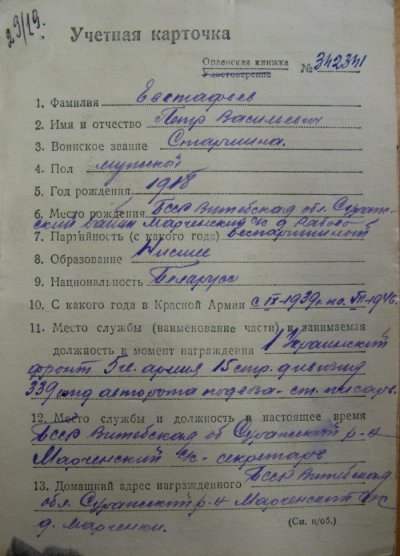 29/19.
Учетная карточка
Орденская книжка
Удостоверение № 342341
1. Фамилия Евстафьев
2. Имя и отчество Петр Васильевич
3. Воинское звание Старшина.
4. Пол мужской
5. Год рождения 1918
6. Место рождения БССР Витебская обл. Сураж-
ский район Марченский с/с д.
7. Партийность (с какого года) беспартийный
8. Образование Низшее
9. Национальность Беларусс
10. С какого года в Красной Армии с IX-1939г по 1946.
11. Место службы (наименование части) и занимаемая
должность в момент награждения 1 Украинский
фронт 5 гв. армия 15 стр. дивизия
339 авторота подвоза - ст. писарь.
12. Место службы и должность в настоящее время
БССР Витебская об Суражский р-н
Марченский с/с - секретарь
13. Домашний адрес награжденного БССР Витебская
обл. Суражский р-н Марченский с/с
д. Марченки.
(См. н/об.)